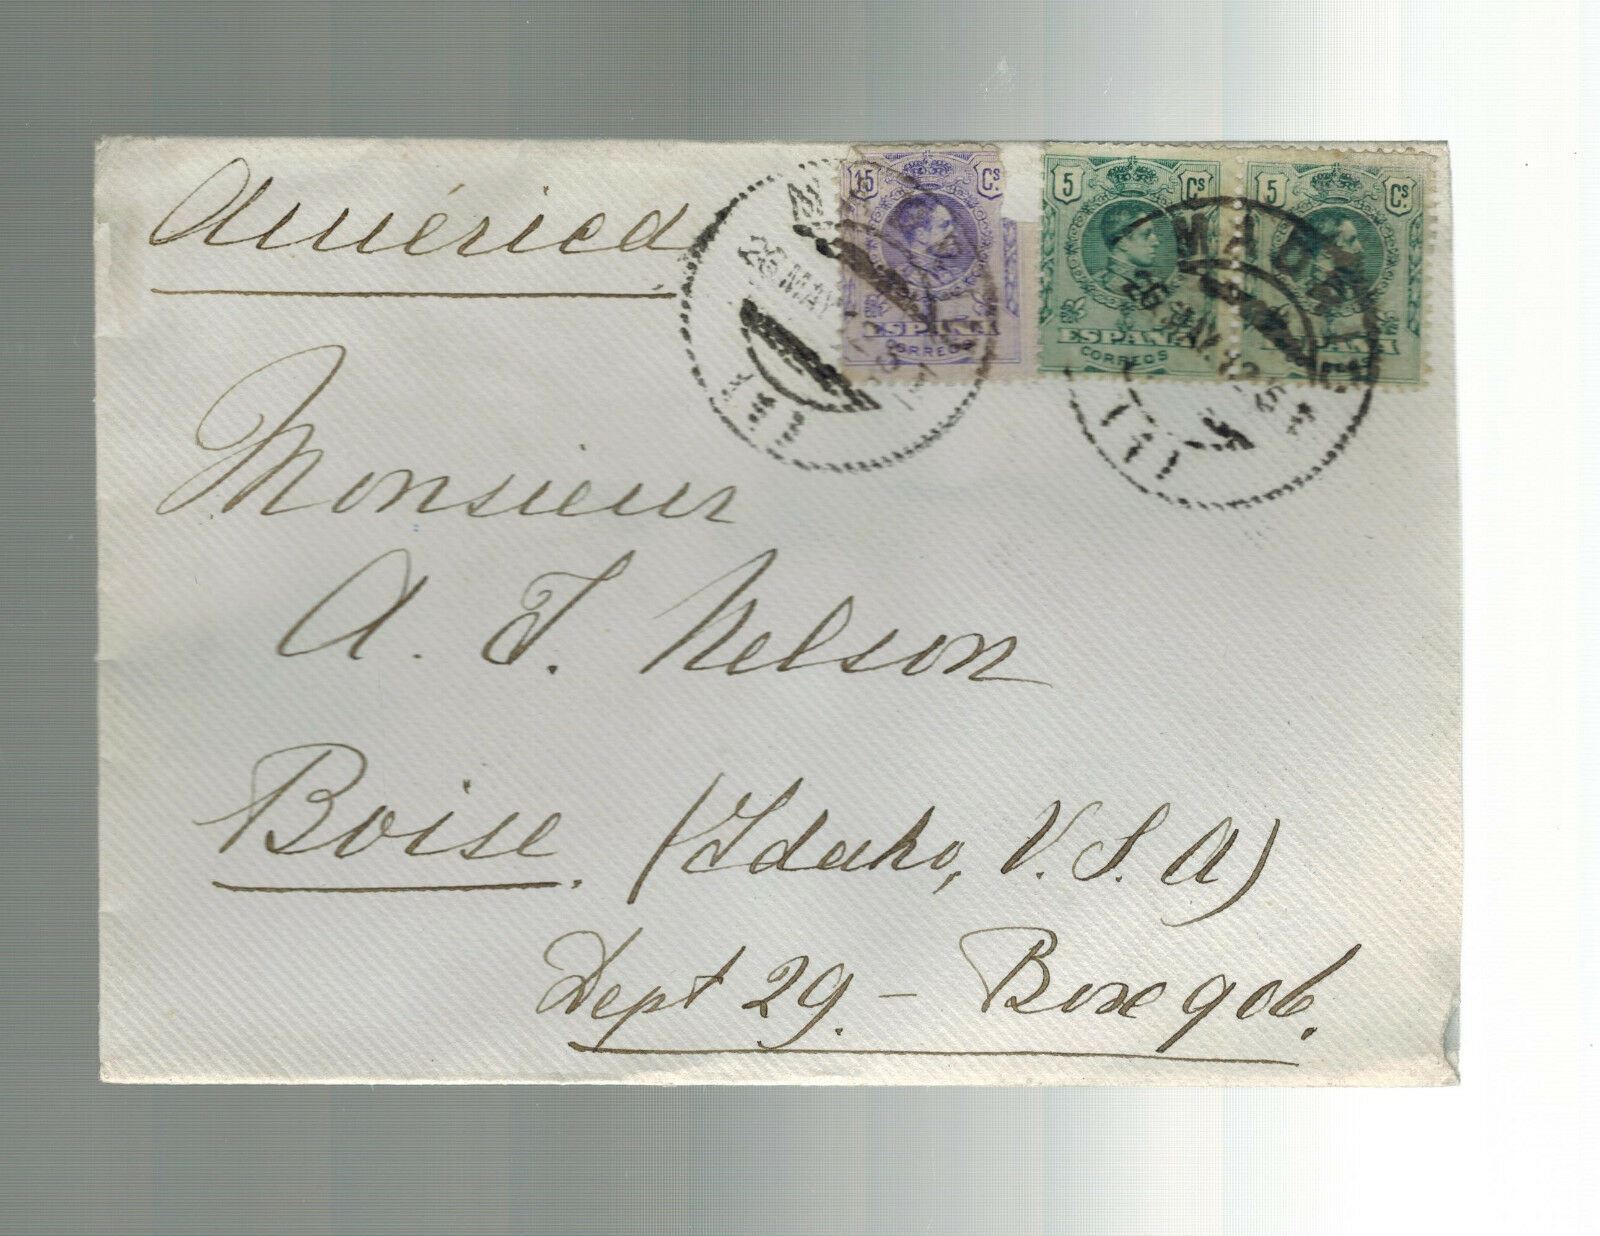 América
15 Cs
ESPAÑA
CORREOS
5 Cs
ESPAÑA
CORREOS
5 Cs
26 MAY
MADRID
26 MAY 12
Monsieur
A. T. Nelson
Boise. (Idaho, U.S.A)
Dept 29. - Boxe 906.